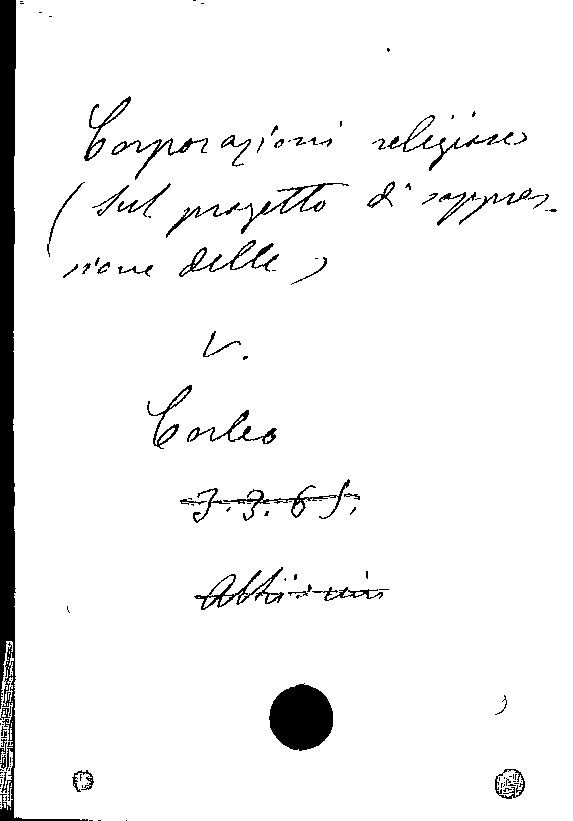 Corporazioni religiose
(Sul progetto di soppres-
sione delle)
V.
Corleo
3.3.65.